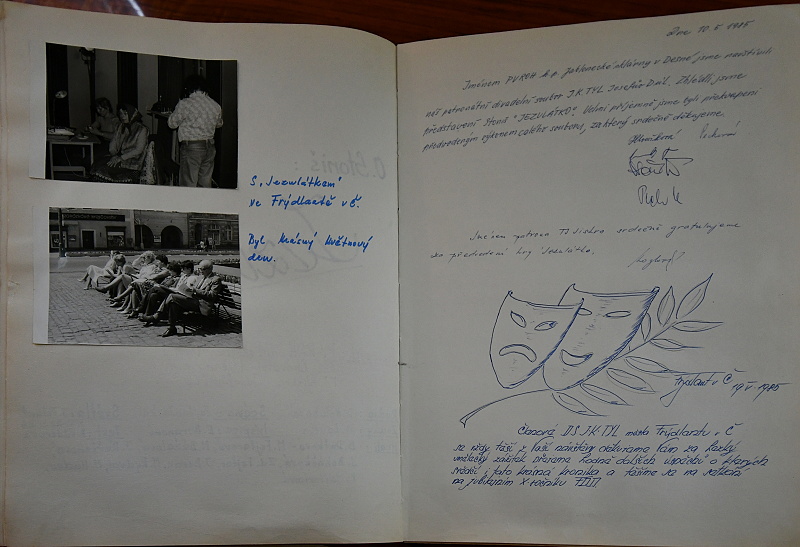 S „Jezulátkem"
ve Frýdlantě v Č.
Byl krásný květnový
den.
Dne 10.5.1985
Jménem PVROH k.p. Jablonecké sklárny v Desné jsme navštívili
náš patronátní divadelní soubor J.K. TYL Josefův Důl. Zhlédli jsme
představení Stoniš "JEZULÁTKO". Velmi příjemně jsme byli překvapeni
předvedeným výkonem celého souboru, za který srdečně děkujeme.
Jménem patrona TJ Jiskra srdečně gratulujeme
za předvedení hry Jezulátko.
Frýdlant v Č 19.V.1985
Členové DS J.K. TYL města Frýdlantu v Č
se vždy těší z Vaší návštěvy děkujeme Vám za hezký
umělecký zážitek přejeme hodně dalších úspěchů o kterých
svědčí i tato krásná kronika a těšíme se na setkání
na jubilejním X ročníku